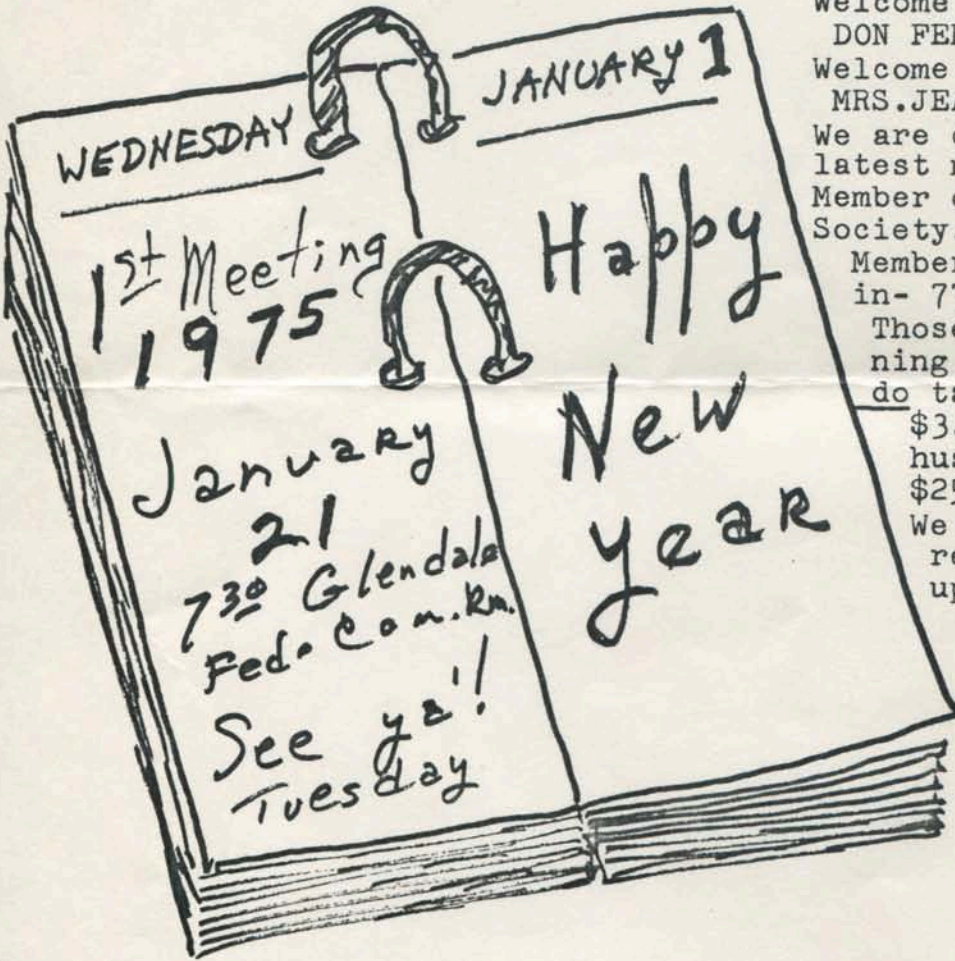 WEDNESDAY
1st Meeting
1975
January
21
730 Glendale
Fed. Com. Rm.
See ya'!
Tuesday
JANUARY 1
Happy
New
Year
Welcome
DON
Welcome
MRS.
We are
latest
Member
Society
Member
in- 77
Those
ning
do
$3
$25
We